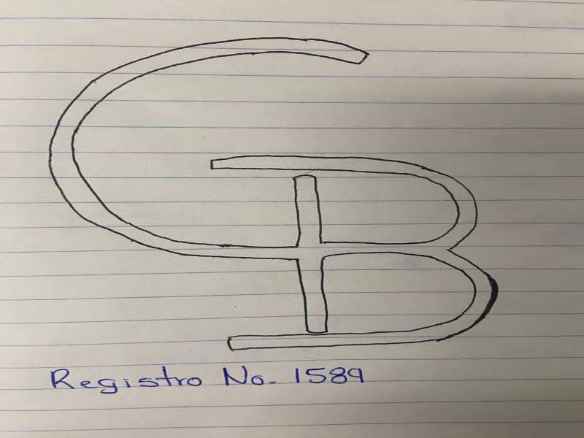 CB
Registro No. 1589